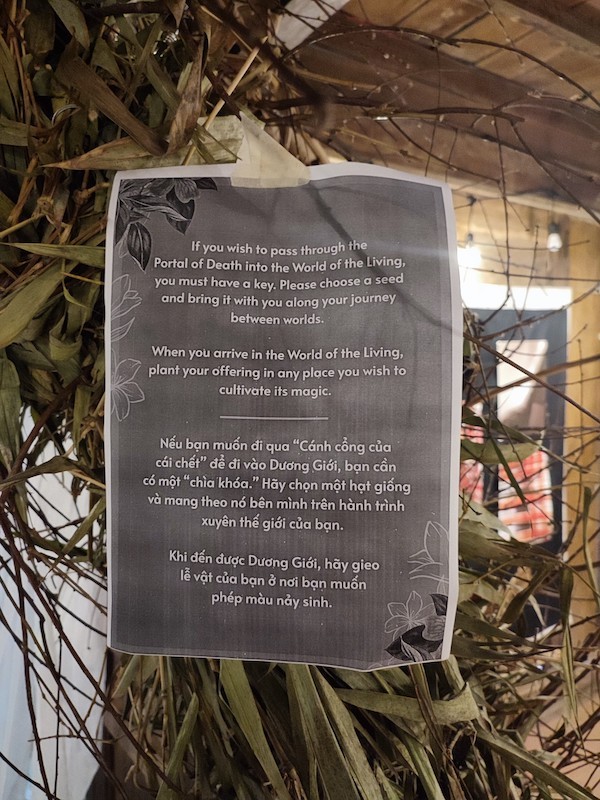 If you wish to pass through the
Portal of Death into the World of the Living,
you must have a key. Please choose a seed
and bring it with you along your journey
between worlds.
When you arrive in the World of the Living,
plant your offering in any place you wish to
cultivate its magic.
Nếu bạn muốn đi qua “Cánh cổng của
cái chết” để đi vào Dương Giới, bạn cần
có một “chìa khóa.” Hãy chọn một hạt giống
và mang theo nó bên mình trên hành trình
xuyên thế giới của bạn.
Khi đến được Dương Giới, hãy gieo
lễ vật của bạn ở nơi bạn muốn
phép màu nảy sinh.